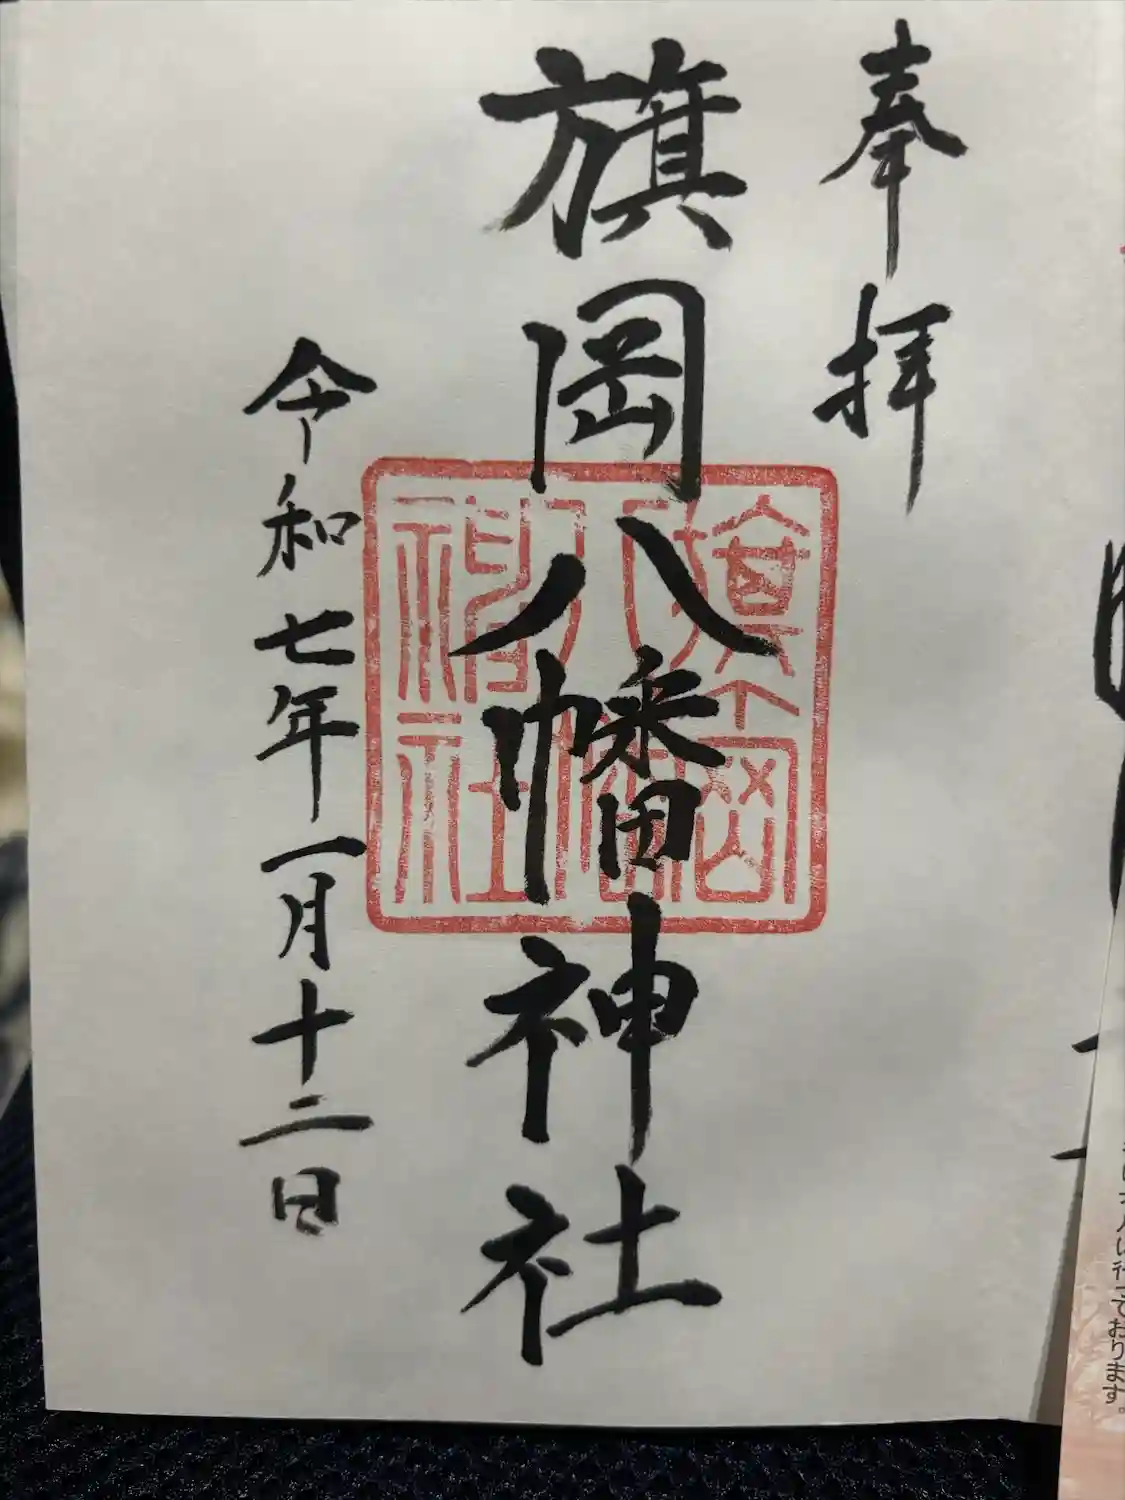 奉拝
旗岡八幡神社
旗岡八幡神社
令和七年一月十二日
行っております。